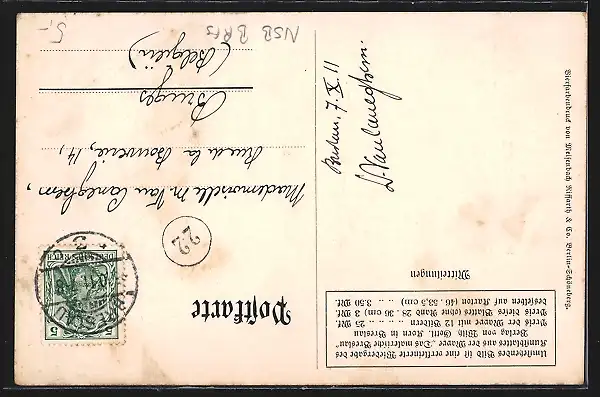 Postkarte
22
Mademoiselle M. Van Caneghem,
Rue de la Bouverie, 14,
Bruges
(Belgien)
5,-
NSB
Mitteilungen
7. X. 11
Umstehendes Bild ist eine verkleinerte Wiedergabe des
Kunstblattes aus der Mappe „Das malerische Breslau“
Verlag von Wilh. Gottl. Korn in Breslau
Preis der Mappe mit 12 Bildern .. .. .. 25 Mk.
Preis dieses Blattes ohne Rand 28 . 36 cm) 3 Mk.
desselben auf Karton (46 . 53,5 cm) .. .. 3.50 Mk.
Vierfarbendruck von Meisenbach Riffarth & Co. Berlin-Schöneberg.
5 5